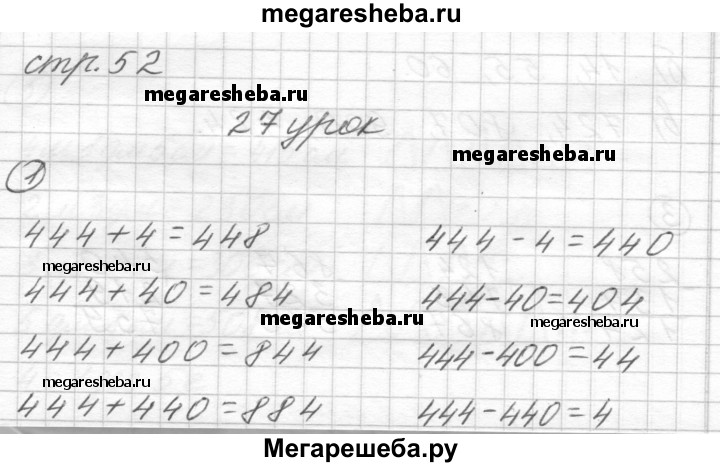 megaresheba.ru
стр. 52
megaresheba.ru
27 урок
megaresheba.ru
1
444 + 4 = 448 444 - 4 = 440
megaresheba.ru
444 + 40 = 484 444 - 40 = 404
megaresheba.ru megaresheba.ru
444 + 400 = 844 444 - 400 = 44
megaresheba.ru
444 + 440 = 884 444 - 440 = 4
Мегарешеба.ру